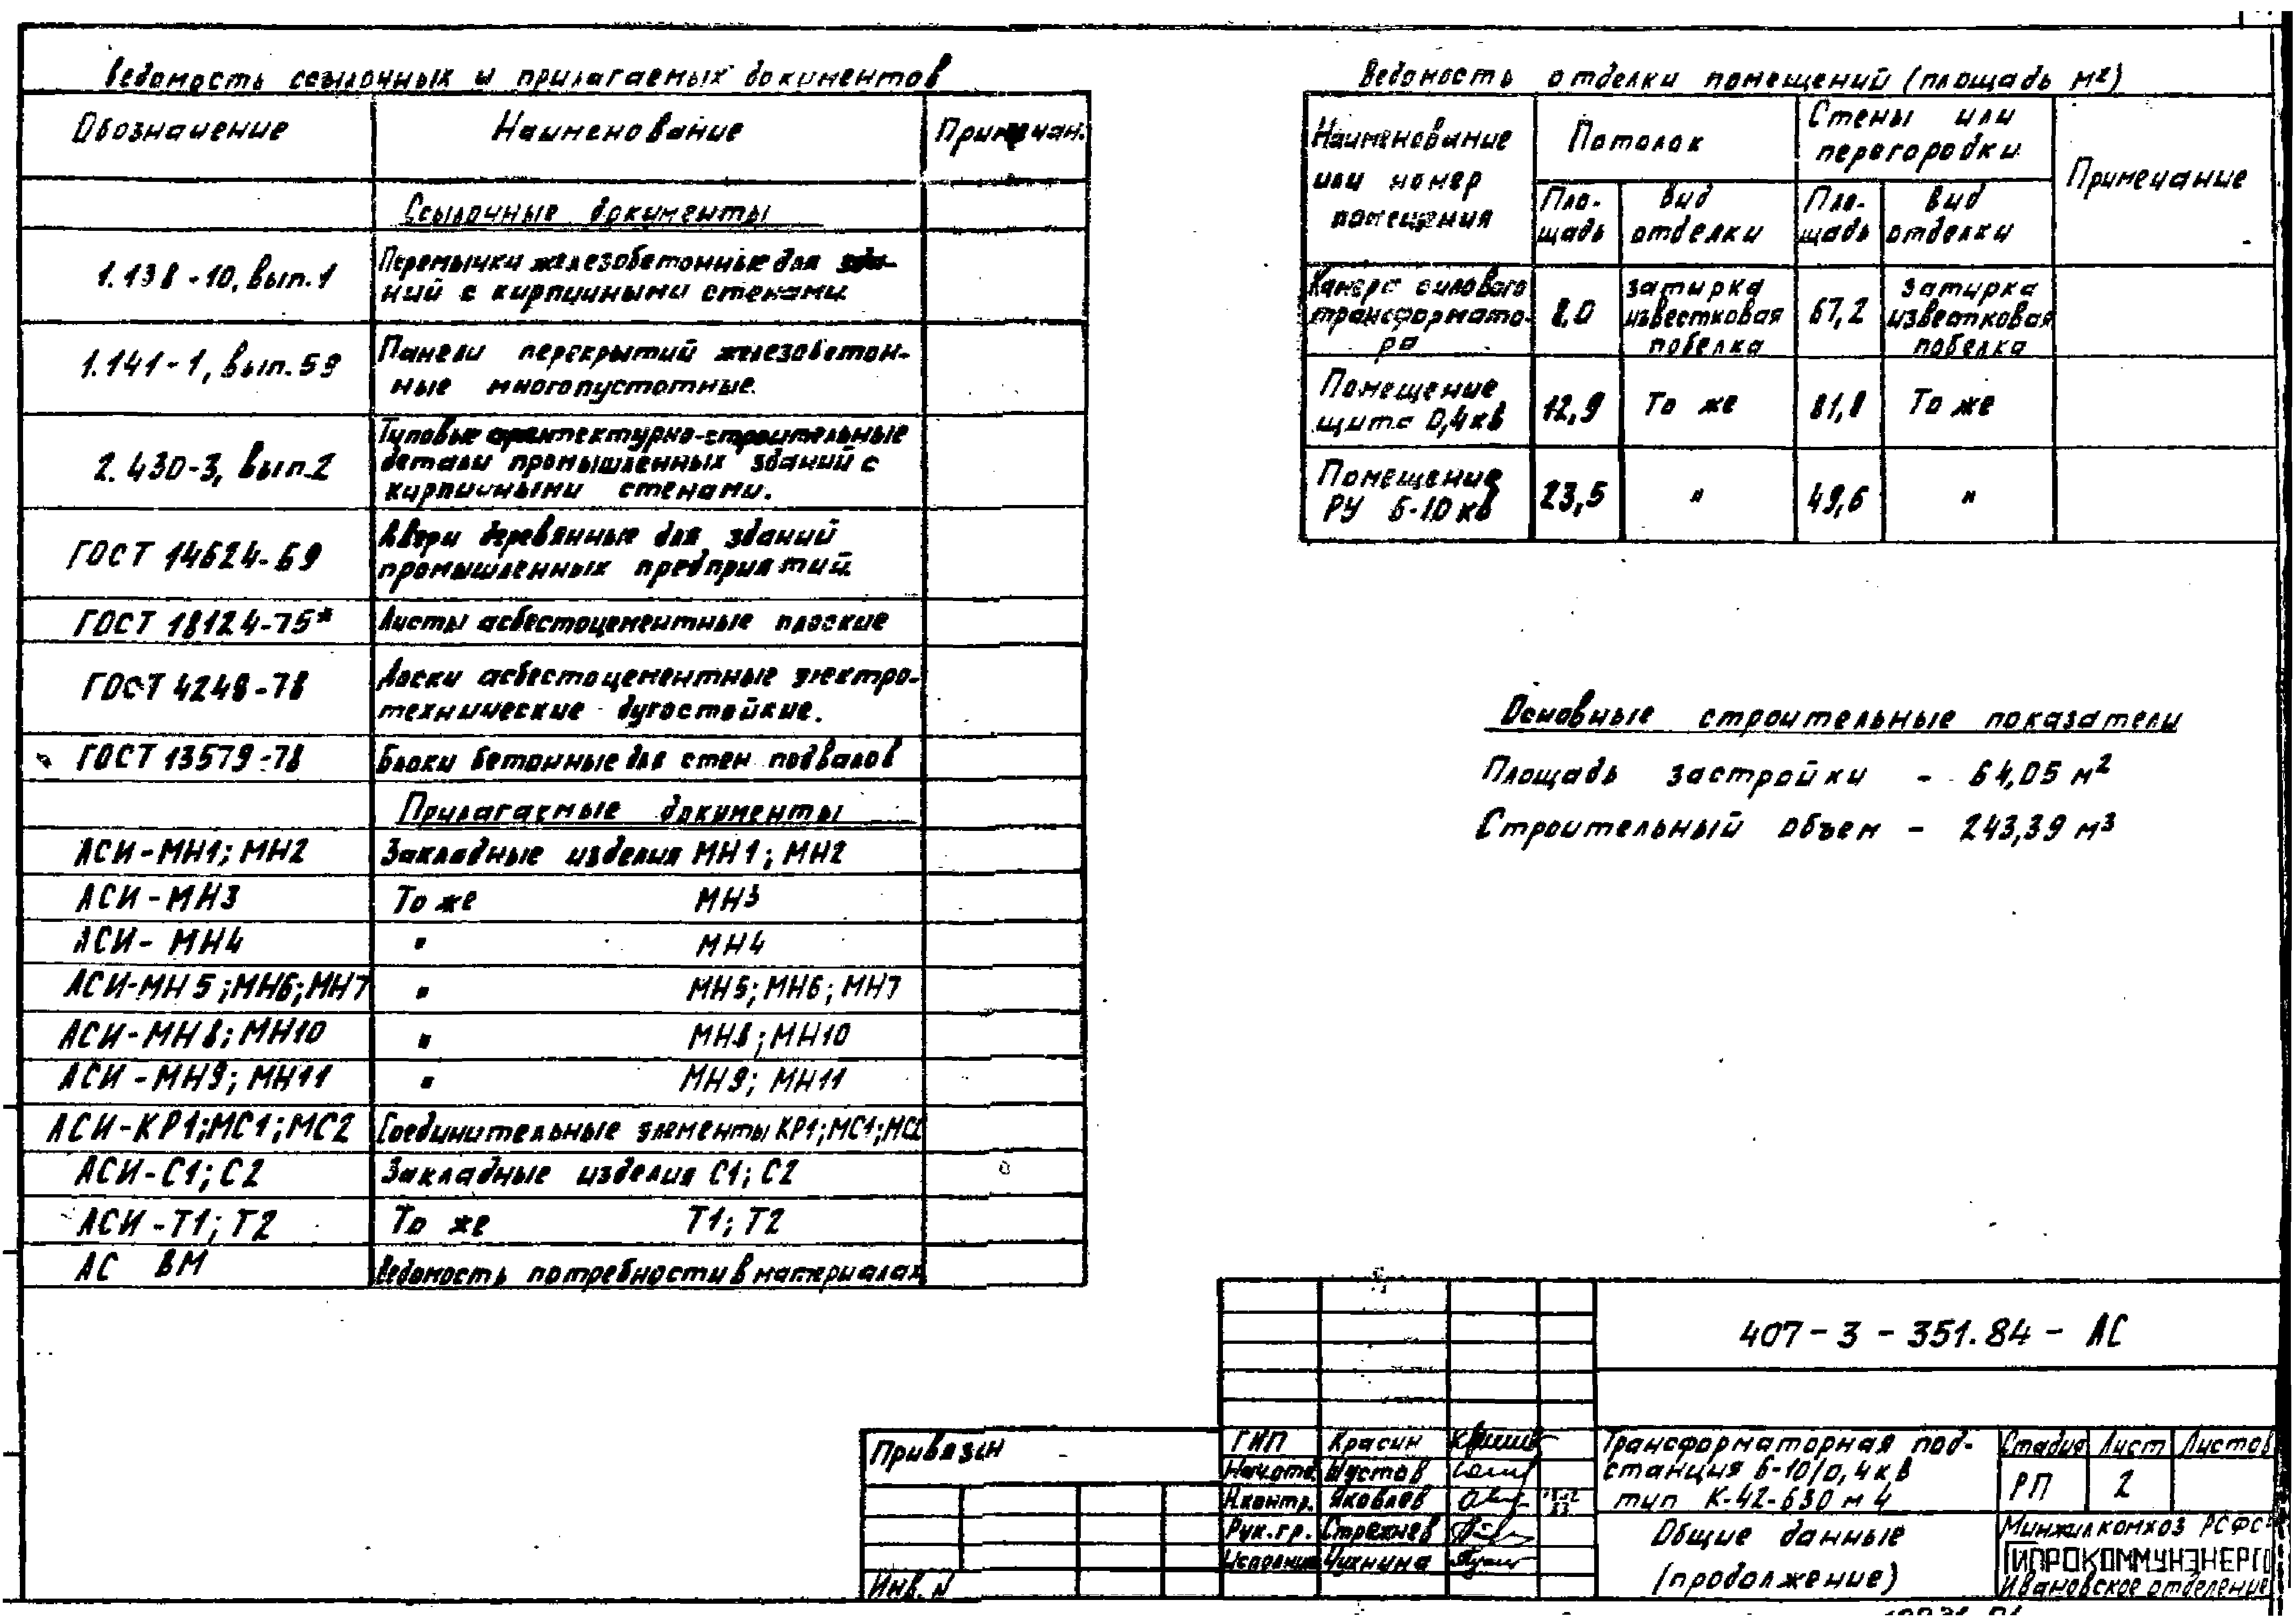 Ведомость ссылочных и прилагаемых документов
Обозначение Наименование Примечан.
Ссылочные документы
1.138-10, вып.1 Перемычки железобетонные для зда-
ний с кирпичными стенами.
1.141-1, вып.59 Панели перекрытий железобетон-
ные многопустотные.
2.430-3, вып.2 Типовые архитектурно-строительные
детали промышленных зданий с
кирпичными стенами.
ГОСТ 14624-69 Двери деревянные для зданий
промышленных предприятий.
ГОСТ 18124-75* Листы асбестоцементные плоские
ГОСТ 4248-78 Доски асбестоцементные электро-
технические дугостойкие.
ГОСТ 13579-78 Блоки бетонные для стен подвалов
Прилагаемые документы
АСИ-МН1; МН2 Закладные изделия МН1; МН2
АСИ-МН3 То же МН3
АСИ- МН4 " МН4
АСИ-МН5;МН6;МН7 " МН5; МН6; МН7
АСИ-МН8; МН10 " МН8; МН10
АСИ-МН9; МН11 " МН9; МН11
АСИ-КР1;МС1;МС2 Соединительные элементы КР1;МС1;МС2
АСИ-С1; С2 Закладные изделия С1; С2
АСИ-Т1; Т2 То же Т1; Т2
АС ВМ Ведомость потребности в материалах
Ведомость отделки помещений (площадь м²)
Наименование
или номер
помещения
Потолок
Стены или
перегородки
Примечание
Пло-
щадь
Вид
отделки
Пло-
щадь
Вид
отделки
Камера силового
трансформато-
ра
8,0
затирка
известковая
побелка
67,2
затирка
известковая
побелка
Помещение
щита 0,4кв
12,9 То же 81,8 То же
Помещение
РУ 6-10 кв
23,5 " 49,6 "
Основные строительные показатели
Площадь застройки - 64,05 м²
Строительный объем - 243,39 м³
407-3-351.84-АС
Привязан
Инв. N
ГИП Красин
Нач.отд. Шустов
Н.контр. Яковлев
Рук.гр. Стрежнев
Исполнил Чухнина
Трансформаторная под-
станция 6-10/0,4кв
тип К-42-630 м4
Стадия Лист Листов
РП 2
Общие данные
(продолжение)
Минжилкомхоз РСФСР
ГИПРОКОММУНЭНЕРГО
Ивановское отделение